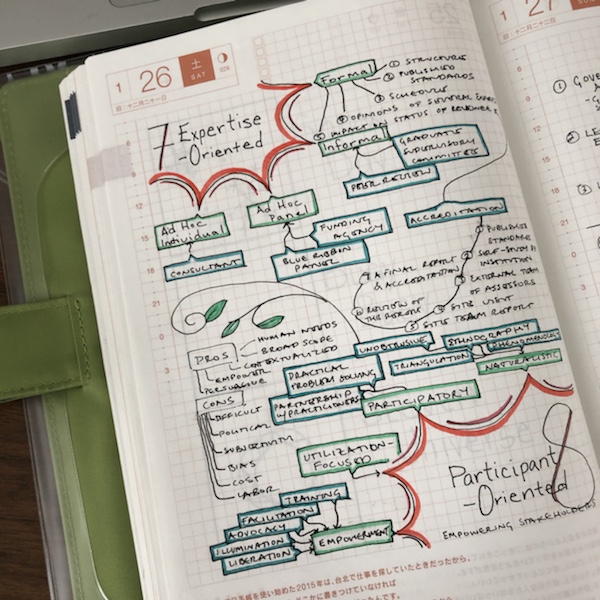 1
26
土
SAT
旧:十二月二十一日
7 Expertise
-Oriented
Formal
① STRUCTURE
② PUBLISHED
STANDARDS
③ SCHEDULE
④ OPINIONS OF SEVERAL EXPERTS
⑤ IMPACT ON STATUS OF REVIEWEE
Informal
GRADUATE
SUPERVISORY
COMMITTEE
PEER REVIEW
Ad Hoc
Individual
CONSULTANT
Ad Hoc
Panel
FUNDING
AGENCY
BLUE RIBBON
PANEL
ACCREDITATION
PUBLISHED
STANDARDS
SELF-STUDY
INSTITUTION
EXTERNAL TEAM
OF ASSESSORS
SITE VISIT
SITE TEAM REPORT
REVIEW OF
THE REPORT
A FINAL REPORT
& ACCREDITATION
PROS
HUMAN NEEDS
BROAD SCOPE
CONTEXTUALIZED
EMPOWER
PERSUASIVE
CONS
DIFFICULT
POLITICAL
SUBJECTIVITY
BIAS
COST
LABOR
UNOBTRUSIVE
ETHNOGRAPHY
PHENOMENOLOGY
TRIANGULATION
NATURALISTIC
PRACTICAL
PROBLEM SOLVING
PARTNERSHIP
W/PRACTIONERS
PARTICIPATORY
UTILIZATION-
FOCUSED
TRAINING
FACILITATION
ADVOCACY
ILLUMINATION
LIBERATION
EMPOWERMENT
Participant 8
-Oriented
EMPOWERING STAKEHOLDERS
手帳を使い始めた2015年は、台北で仕事を探していたときだったから、
1
27
旧:十二月二十二日